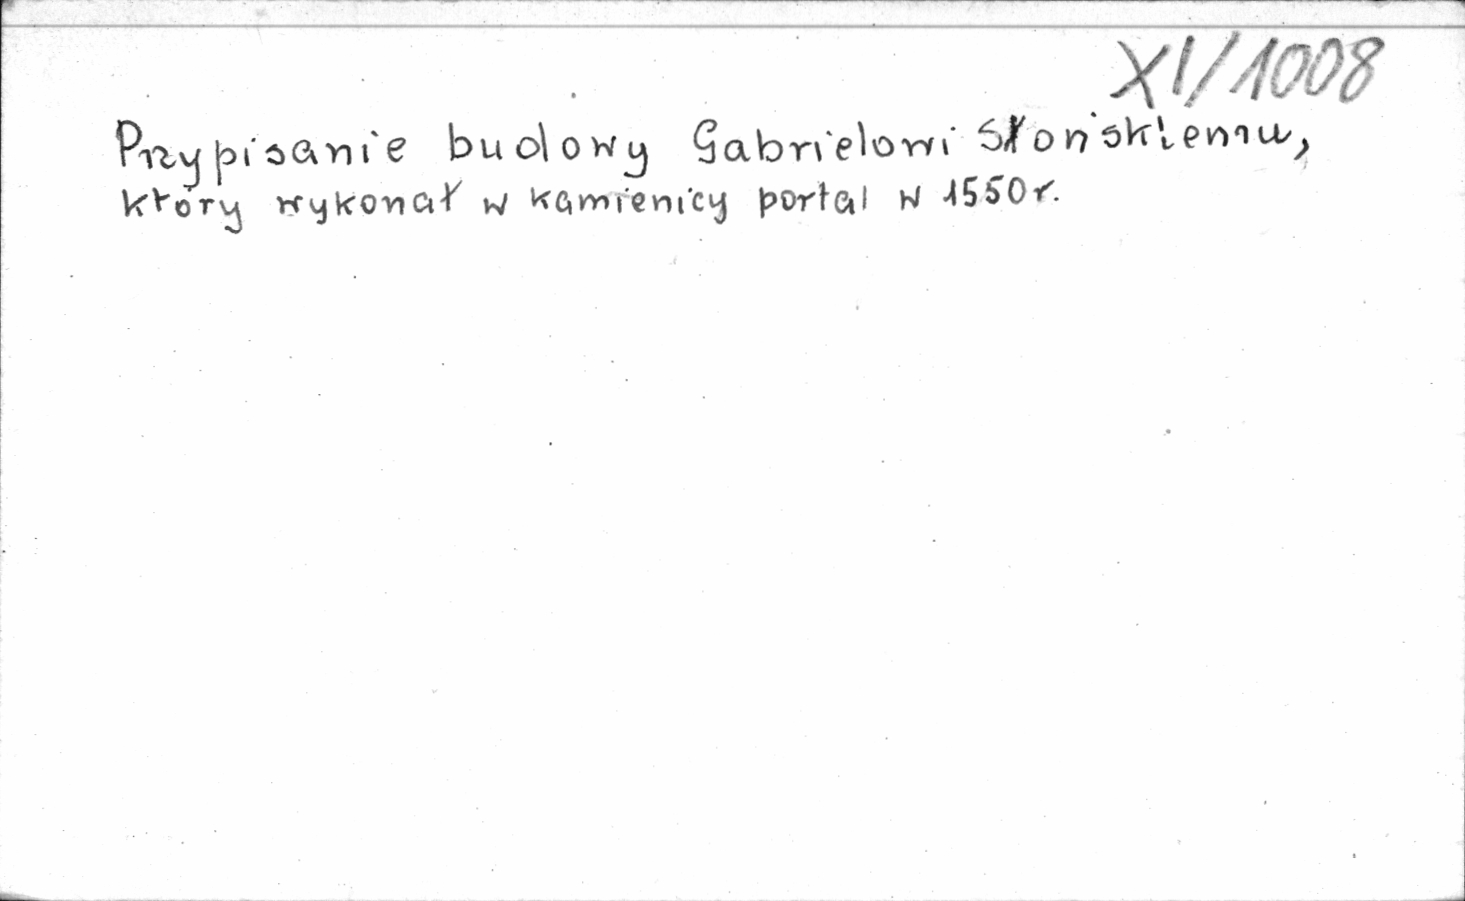 XI/1008
Przypisanie budowy Gabrielowi Słońskiemu,
który wykonał w kamienicy portal w 1550 r.